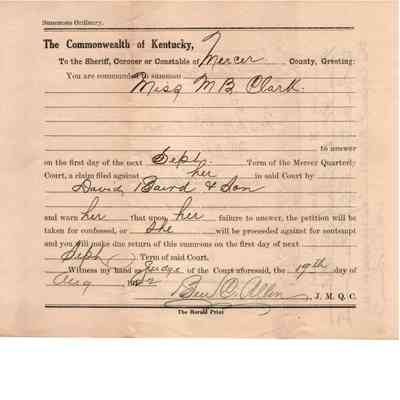 Summons Ordinary.
The Commonwealth of Kentucky,
To the Sheriff, Coroner or Constable of Mercer County, Greeting:
You are commanded to summon
Miss M B Clark.
to answer
on the first day of the next Sept. Term of the Mercer Quarterly
Court, a claim filed against her in said Court by
David Baird & Son
and warn her that upon her failure to answer, the petition will be
taken for confessed, or She will be proceeded against for contempt
and you will make due return of this summons on the first day of next
Sept Term of said Court.
Witness my hand as Judge of the Court aforesaid, the 19th day of
Aug
Ben C. Allin, J. M. Q. C.
The Herald Print